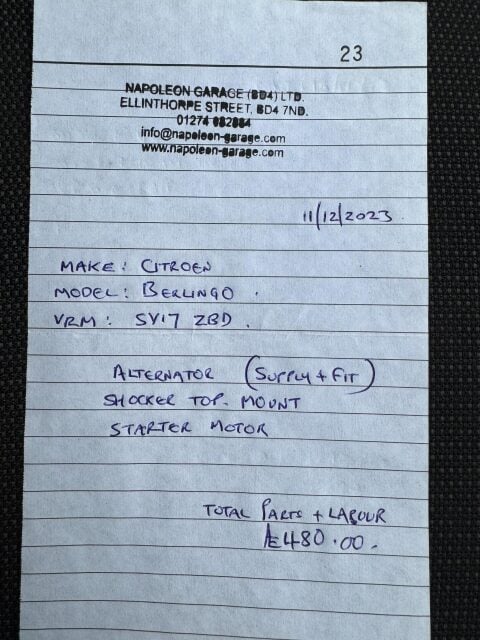 23
NAPOLEON GARAGE (BD4) LTD.
ELLINTHORPE STREET, BD4 7ND.
01274
info@napoleon-garage.com
www.napoleon-garage.com
11/12/2023
MAKE: CITROEN
MODEL: BERLINGO.
VRM: SV17 ZBD.
ALTERNATOR (SUPPLY + FIT)
SHOCKER TOP. MOUNT
STARTER MOTOR
TOTAL PARTS + LABOUR
£480.00.